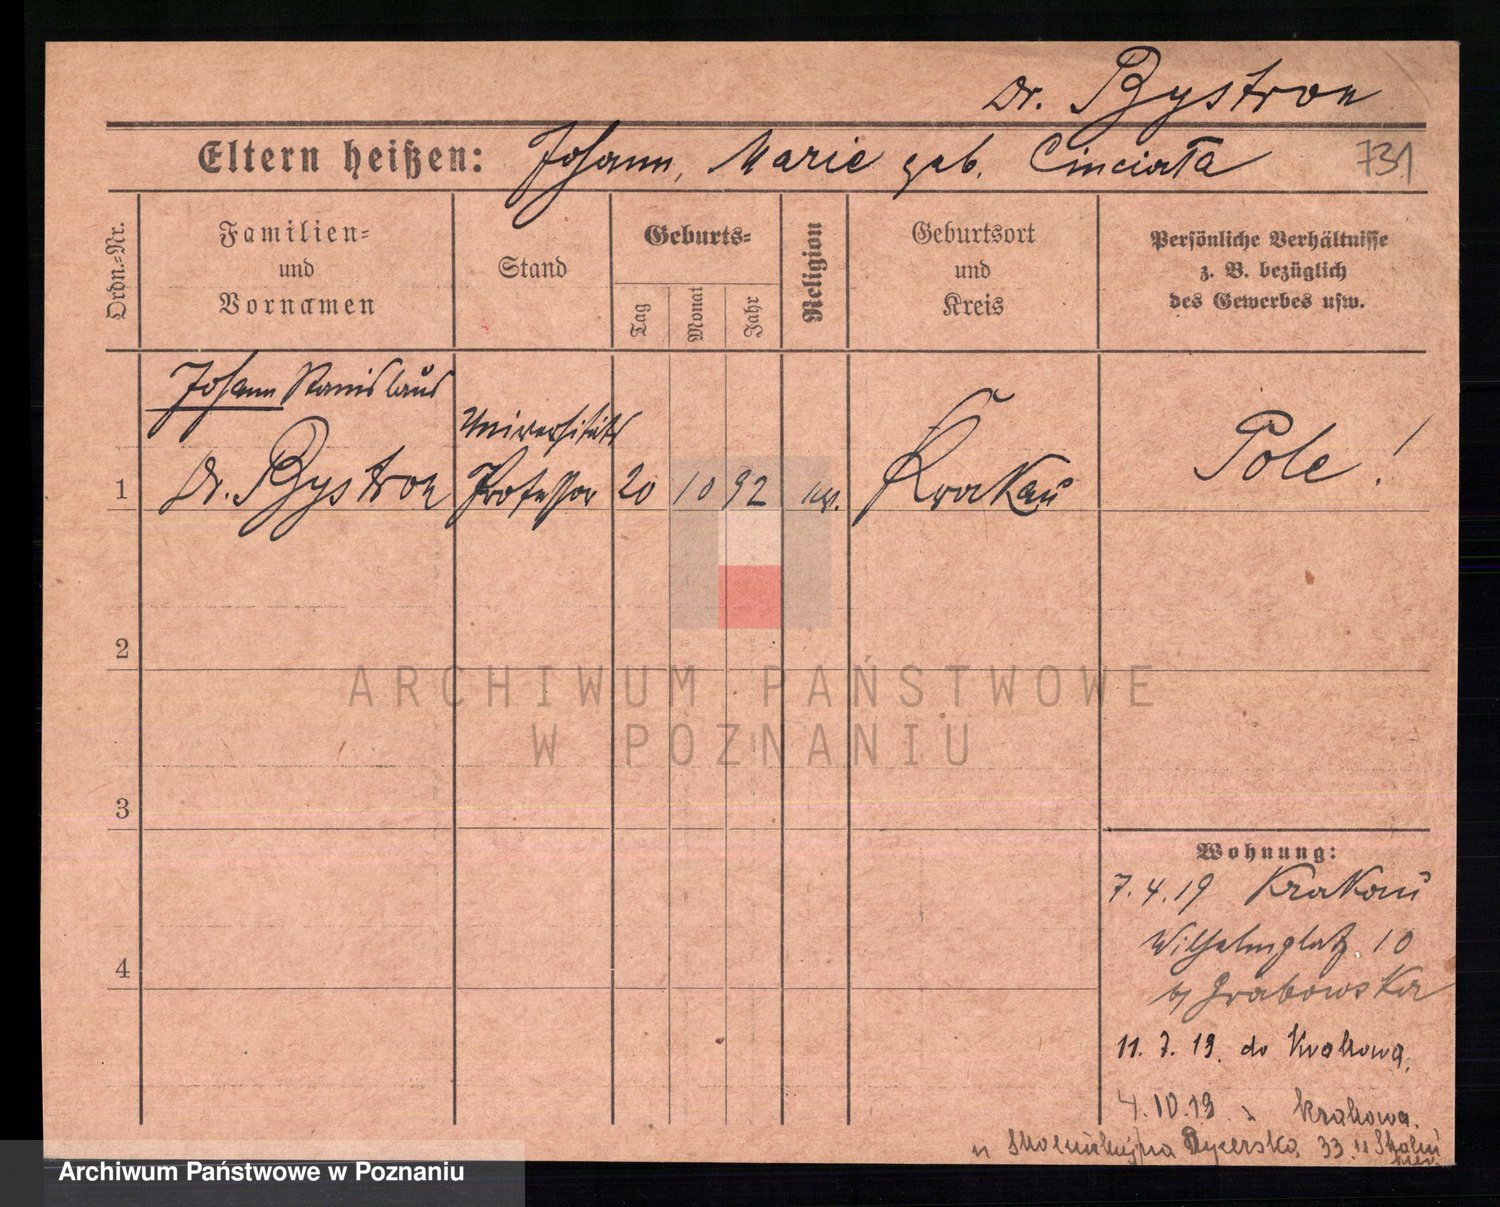 Dr. Bystron
Eltern heißen: Johann, Marie geb. Cinciała
731
Ordn.-Nr.
Familien-
und
Vornamen
Stand
Geburts-
Tag
Monat
Jahr
Religion
Geburtsort
und
Kreis
Persönliche Verhältnisse
z. B. bezüglich
des Gewerbes usw.
Johann Stanislaus
Universitäts
1 Dr. Bystron Professor 20 10 92 Krakau Pole!
2
ARCHIWUM PAŃSTWOWE
W POZNANIU
3
Wohnung:
7.4.19 Krakau
Wilhelmplatz 10
b/ Grabowska
4
11.7.19. do Krakowa.
4.10.19 Krakowa.
Rycerska 33
Archiwum Państwowe w Poznaniu